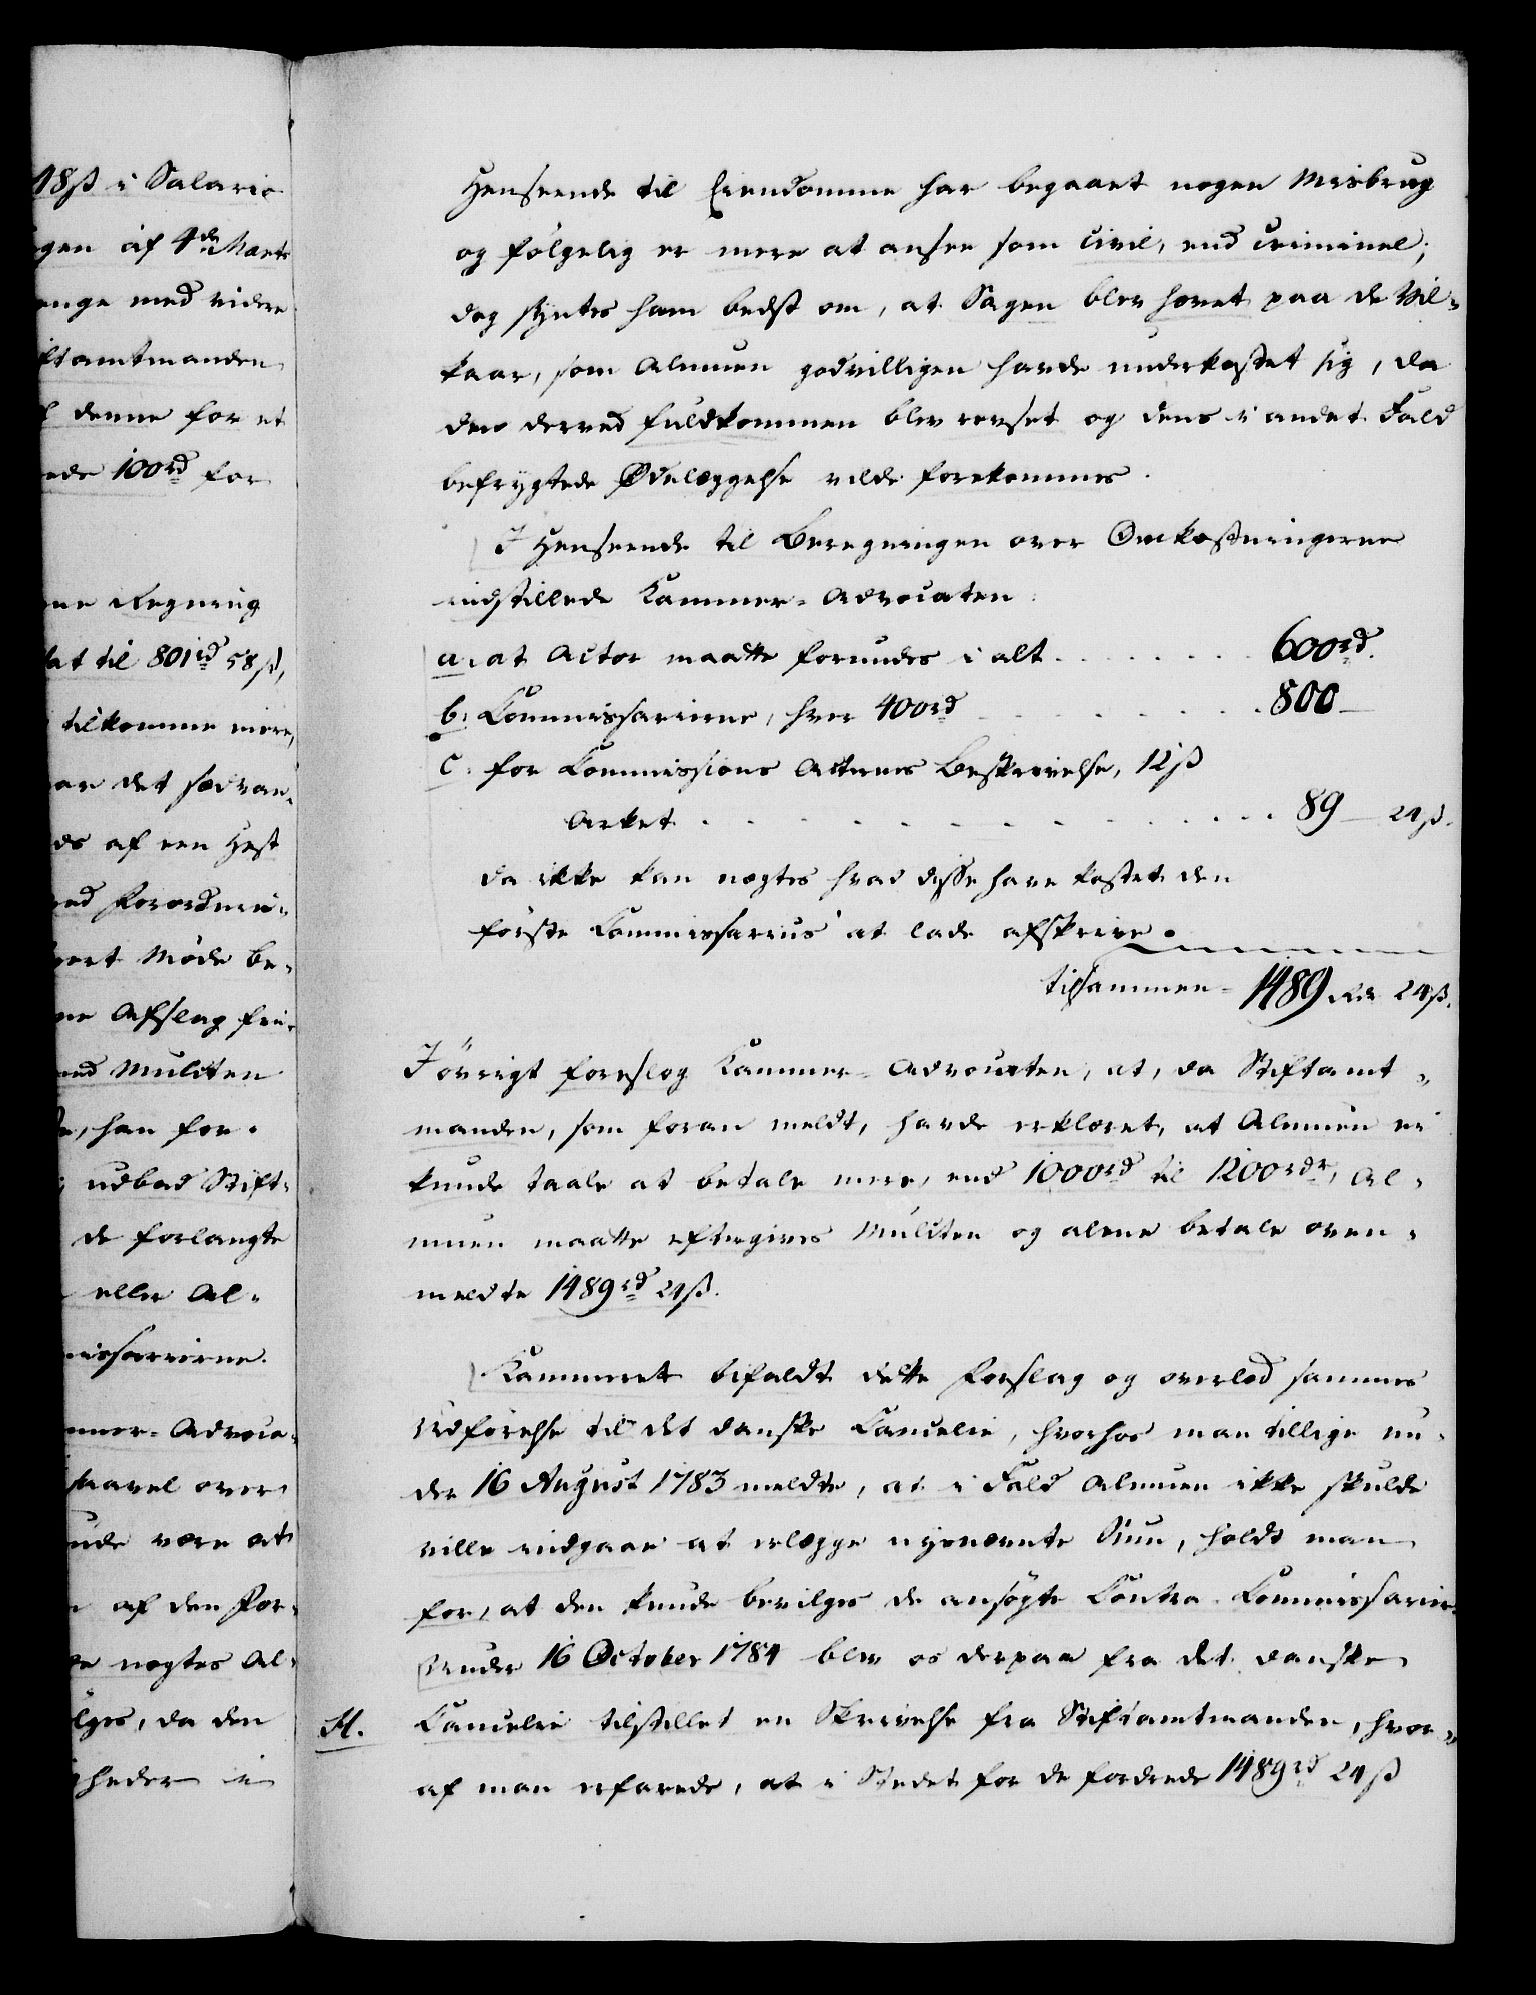 18ß i Salario
gen af 4de Marts
enge med videre
ftamtmanden
denne for et
ede 100rd for
ne Regning
at til 801rd 58ß,
tilkomme mere,
ar det sædvan-
ds af een Hest
ed Forordnin-
ert Møde be-
ne Afslag fri-
ed Mulcten
, han for-
udbad Stift-
de forlangte
eller Al-
missarierne.
mmer-Advoca-
saavel over
nde være at
af den For-
e nægtes Al-
lges, da den
gheder i
Henseende til Eiendomme har begaaet nogen Misbrug
og følgelig er mere at ansee som civil, end criminel;
dog syntes ham bedst om, at Sagen blev hævet paa de Vil-
kaar, som Almuen godvilligen havde underkastet sig, da
den derved fuldkommen blev revset og dens i andet Fald
befrygtede Ødelæggelse vilde forekommes.
I Henseende til Beregningen over Omkostningerne
indstillede Kammer-Advocaten:
a. at Actor maatte forundes i alt . . . . . . . 600rd.
b. Commissarierne, hver 400rd . . . . . . 800 —
c. for Commissions Acternes Beskrivelse, 12ß
Arket . . . . . . . . . . . . . 89 — 24ß.
da ikke kan nægtes hvad disse have kostet den
første Commissarius at lade afskrive.
tilsammen - 1489 Rd 24ß.
I øvrigt foreslog Kammer-Advocaten, at, da Stiftamt-
manden, som foran meldt, havde erklæret, at Almuen ei
kunde taale at betale mere, end 1000rd til 1200rdr, Al-
muen maatte eftergives Mulcten og alene betale oven-
meldte 1489rd 24ß.
Kammeret bifaldt dette Forslag og overlod sammes
Udførelse til det danske Cancelie, hvorhos man tillige un-
der 16 August 1783 meldte, at i Fald Almuen ikke skulde
ville indgaae at erlægge nysnævnte Sum, holdt man
for, at den kunde bevilges de ansøgte Contra-Commissarier.
Under 16 October 1784 blev os derpaa fra det danske
H. Cancelie tilstillet en Skrivelse fra Stiftamtmanden, hvor-
af man erfarede, at i Stedet for de fordrede 1489rd 24ß